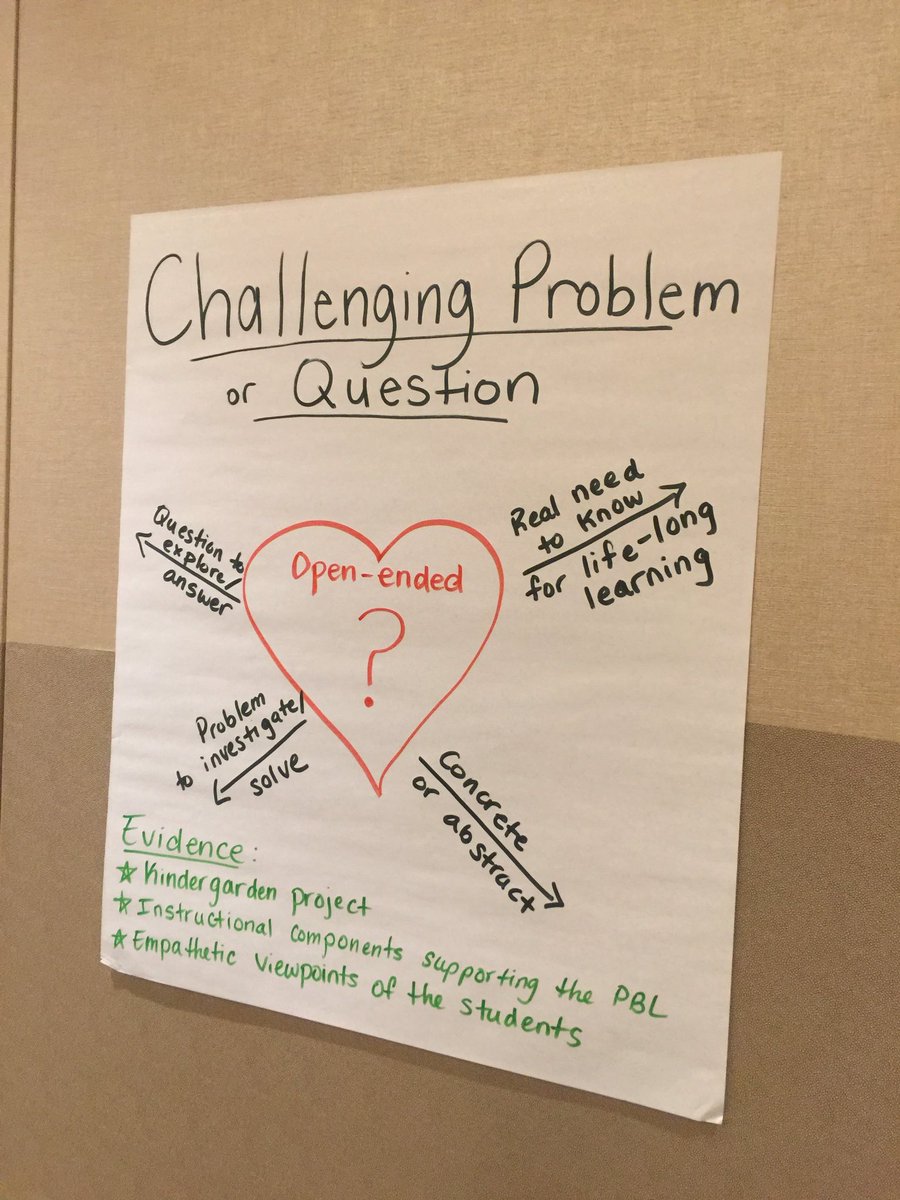 Challenging Problem
or Question
Question to
explore/
answer
Real need
to know
for life-long
learning
Open-ended
?
Problem
to investigate/
solve
Concrete
or abstract
Evidence:
☆ Kindergarden project
☆ Instructional components supporting the PBL
☆ Empathetic viewpoints of the students